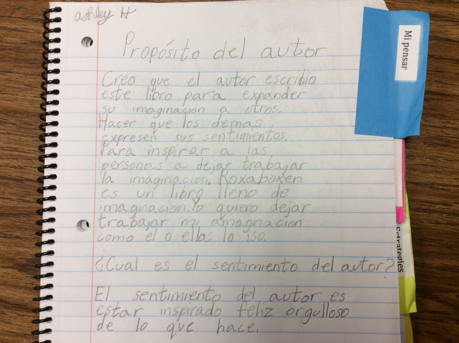 ashley H
Propósito del autor
Creo que el autor escribio
este libro para expander
su imaginacion a otros.
Hacer que los demas
expresen sus sentimientos.
Para inspirar a las
personas a dejar trabajar
la imaginacion. Roxaboxen
es un libro lleno de
imaginacion. Yo quiero dejar
trabajar mi amaginacion
como el o ella lo iso.
¿Cual es el sentimiento del autor?
El sentimiento del autor es
estar inspirado feliz orgulloso
de lo que hace.
Mi pensar
Estrategies